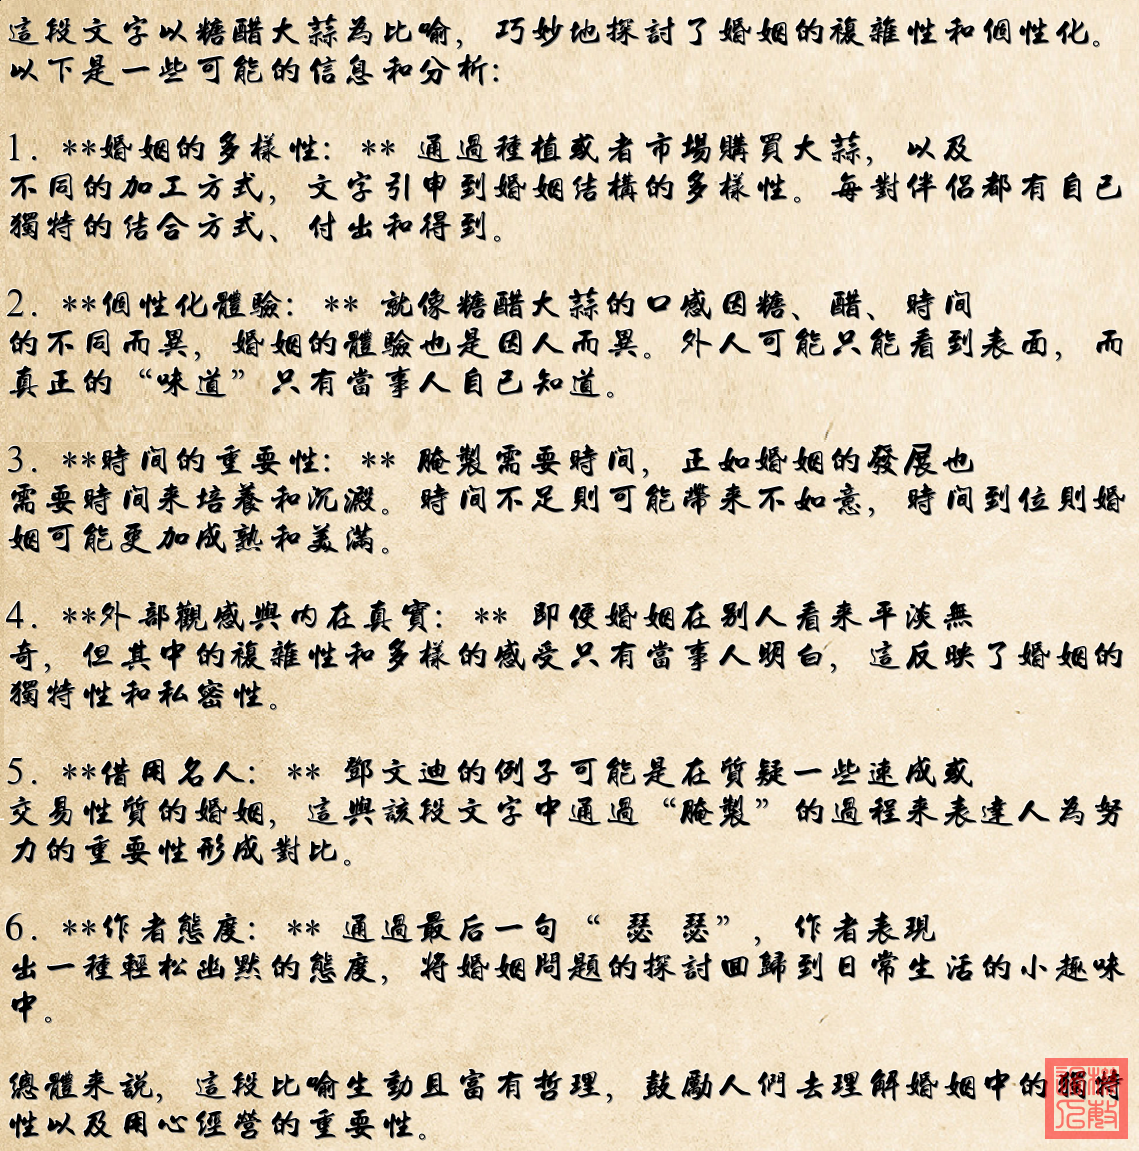 這段文字以糖醋大蒜為比喻，巧妙地探討了婚姻的複雜性和個性化。
以下是一些可能的信息和分析：
1. **婚姻的多樣性：** 通過種植或者市場購買大蒜，以及
不同的加工方式，文字引申到婚姻結構的多樣性。每對伴侶都有自己
獨特的結合方式、付出和得到。
2. **個性化體驗：** 就像糖醋大蒜的口感因糖、醋、時间
的不同而異，婚姻的體驗也是因人而異。外人可能只能看到表面，而
真正的“味道”只有當事人自己知道。
3. **時间的重要性：** 腌製需要時间，正如婚姻的發展也
需要時间来培養和沉澱。時间不足則可能帶来不如意，時间到位則婚
姻可能更加成熟和美滿。
4. **外部觀感與内在真實：** 即使婚姻在别人看来平淡無
奇，但其中的複雜性和多樣的感受只有當事人明白，這反映了婚姻的
獨特性和私密性。
5. **借用名人：** 鄧文迪的例子可能是在質疑一些速成或
交易性質的婚姻，這與該段文字中通過“腌製”的過程来表達人為努
力的重要性形成對比。
6. **作者態度：** 通過最后一句“ 瑟 瑟”，作者表現
出一種輕松幽默的態度，将婚姻問題的探討回歸到日常生活的小趣味
中。
總體来説，這段比喻生動且富有哲理，鼓勵人們去理解婚姻中的獨特
性以及用心經營的重要性。